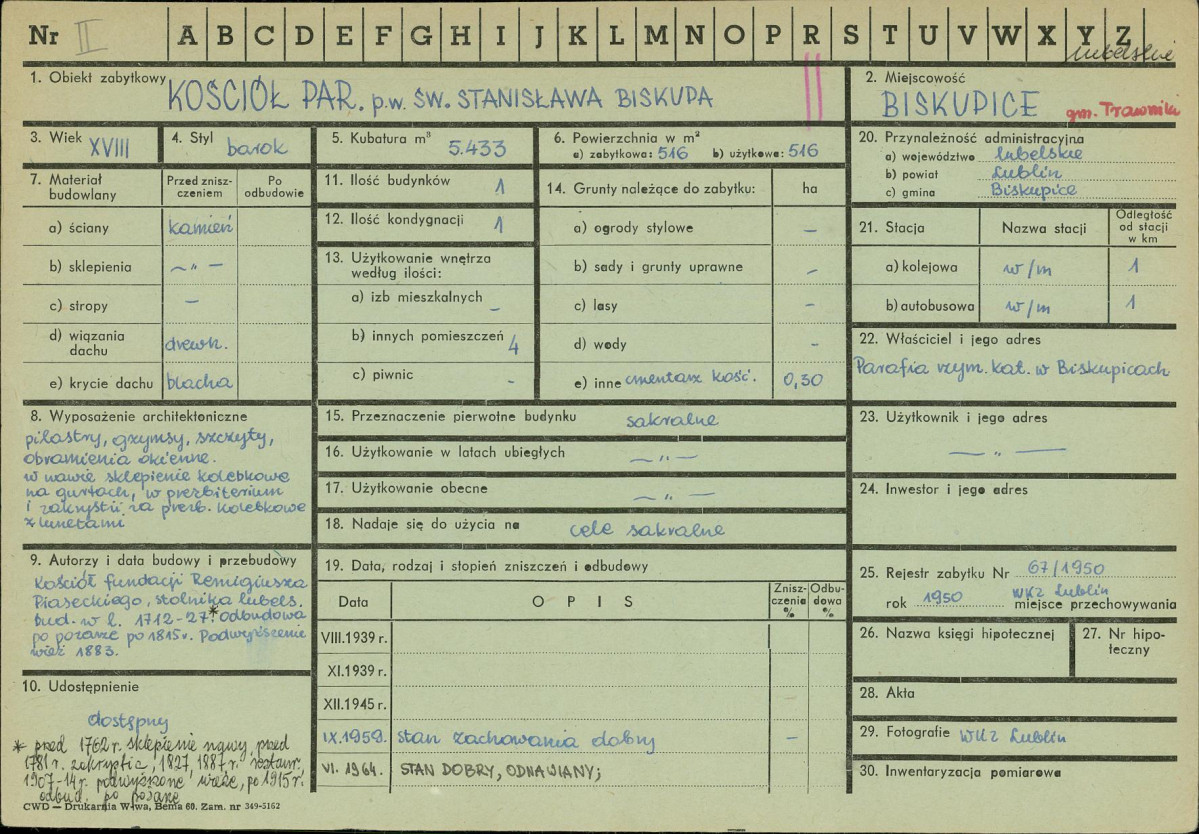 Nr II A B C D E F G H I J K L M N O P R S T U V W X Y Z
lubelskie
1. Obiekt zabytkowy KOŚCIÓŁ PAR. p.w. ŚW. STANISŁAWA BISKUPA
2. Miejscowość
BISKUPICE gm. Trawniki
3. Wiek XVIII
4. Styl barok
5. Kubatura m³ 5.433
6. Powierzchnia w m²
a) zabytkowa: 516 b) użytkowa: 516
7. Materiał budowlany
Przed znisz-
czeniem
Po
odbudowie
a) ściany kamień
b) sklepienia —"—
c) stropy –
d) wiązania
dachu drewn.
e) krycie dachu blacha
8. Wyposażenie architektoniczne
pilastry, gzymsy, szczyty,
obramienia okienne.
w nawie sklepienie kolebkowe
na gurtach, w prezbiterium
i zakrystii za prezb. kolebkowe
z lunetami
9. Autorzy i data budowy i przebudowy
Kościół fundacji Remigiusza
Piaseckiego, stolnika lubels.
bud. w l. 1712-27.* Odbudowa
po pożarze po 1815 r. Podwyższenie
wież 1883.
10. Udostępnienie
dostępny
* przed 1762 r. sklepienie nawy, przed
1781 r. zakrystie, 1827, 1887 r. restaur.
1907-14 r. podwyższone wieże, po 1915 r.
odbud. po pożarze
CWD — Drukarnia W-wa, Bema 60. Zam. nr 349-5162
11. Ilość budynków 1
12. Ilość kondygnacji 1
13. Użytkowanie wnętrza
według ilości:
a) izb mieszkalnych –
b) innych pomieszczeń 4
c) piwnic -
14. Grunty należące do zabytku: ha
a) ogrody stylowe –
b) sady i grunty uprawne –
c) lasy –
d) wody –
e) inne cmentarz kość. 0,30
15. Przeznaczenie pierwotne budynku sakralne
16. Użytkowanie w latach ubiegłych —"—
17. Użytkowanie obecne —"—
18. Nadaje się do użycia na cele sakralne
19. Data, rodzaj i stopień zniszczeń i odbudowy
Data
O P I S
Znisz-
czenie
%
Odbu-
dowa
%
VIII.1939 r.
XI.1939 r.
XII.1945 r.
IX.1959. stan zachowania dobry –
VI. 1964. STAN DOBRY, ODNAWIANY;
20. Przynależność administracyjna
a) województwo lubelskie
b) powiat Lublin
c) gmina Biskupice
21. Stacja
Nazwa stacji
Odległość
od stacji
w km
a) kolejowa w/m 1
b) autobusowa w/m 1
22. Właściciel i jego adres
Parafia rzym. kat. w Biskupicach
23. Użytkownik i jego adres
—"—
24. Inwestor i jego adres
25. Rejestr zabytku Nr 67/1950
WKZ Lublin
rok 1950 miejsce przechowywania
26. Nazwa księgi hipotecznej
27. Nr hipo-
teczny
28. Akta
29. Fotografie WKZ Lublin
30. Inwentaryzacja pomiarowa